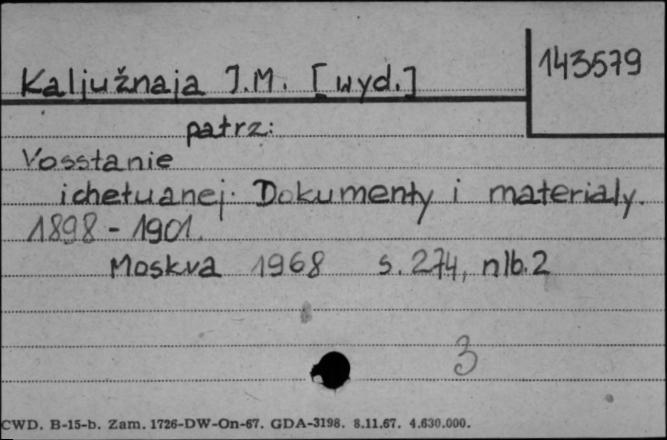 Kaljužnaja J.M. [wyd.]
143579
patrz:
Vosstanie
ichetuanej. Dokumenty i materialy.
1898 - 1901.
Moskva 1968 s. 274, nlb. 2
3
CWD. B-15-b. Zam. 1726-DW-On-67. GDA-3198. 8.11.67. 4.630.000.